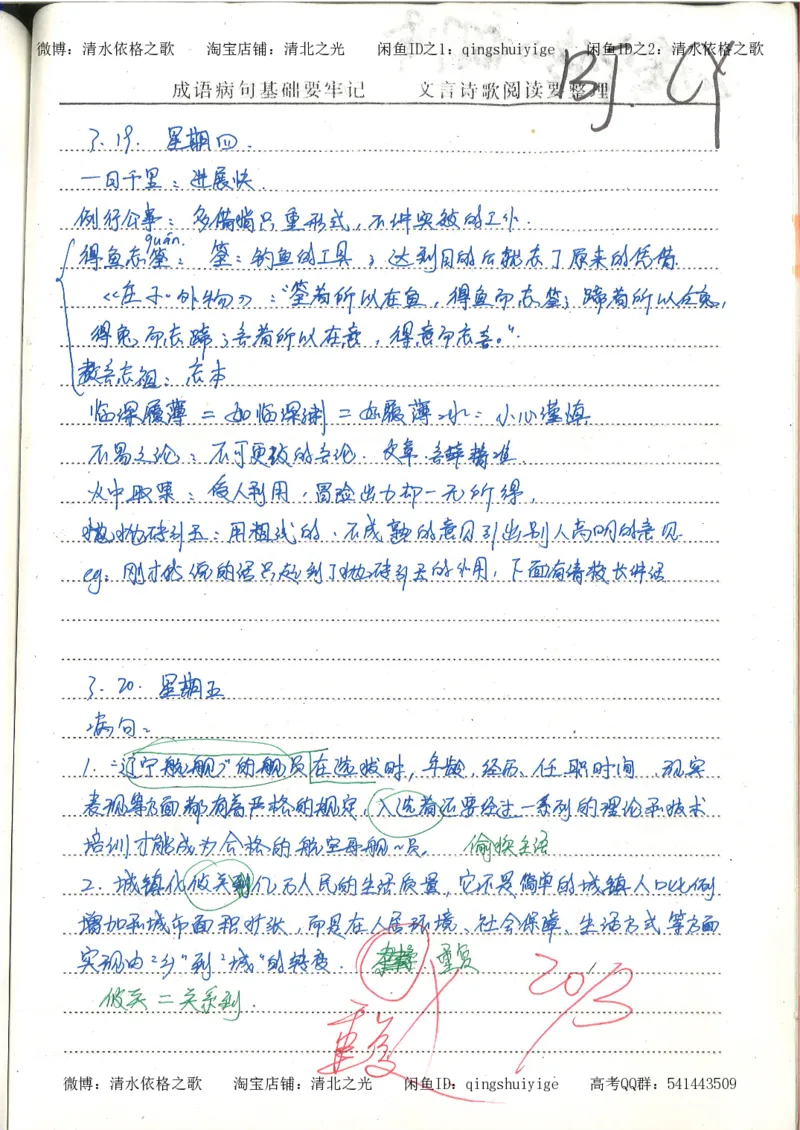 微博：清水依格之歌 淘宝店铺：清北之光 闲鱼ID之1：qingshuiyige 闲鱼ID之2：清水依格之歌
成语病句基础要牢记 文言诗歌阅读要整理
BJ. CY
3.19. 星期四.
一日千里：进展快.
例行公事：多借指只重形式，不讲实效的工作.
quán.
得鱼忘筌：筌：钓鱼的工具；达到目的后就忘了原来的凭借.
《庄子·外物》："筌者所以在鱼，得鱼而忘筌；蹄者所以在兔，
得兔而忘蹄；言者所以在意，得意而忘言。"
数典忘祖：忘本
临深履薄 = 如临深渊 = 如履薄冰：小心谨慎
不易之论：不可更改的言论. 文章、言辞精准.
火中取栗：被人利用，冒险出力却一无所得.
抛砖引玉：用粗浅的、不成熟的意见引出别人高明的意见
eg：刚才我说的话只起到了抛砖引玉的作用，下面有请校长讲话
3.20. 星期五
病句：
1. "辽宁航舰"的舰员在选拔时，年龄、经历、任职时间、现实
表现等方面都有着严格的规定，入选者还要经过一系列的理论和技术
培训才能成为合格的航空母舰~员. 偷换主语
2. 城镇化攸关到亿万人民的生活质量，它不是简单的城镇人口比例
增加和城市面积扩张，而是在人居环境、社会保障、生活方式等方面
实现由"乡"到"城"的转变. 重复
攸关 = 关系到.
重复
20/3
微博：清水依格之歌 淘宝店铺：清北之光 闲鱼ID：qingshuiyige 高考QQ群：541443509